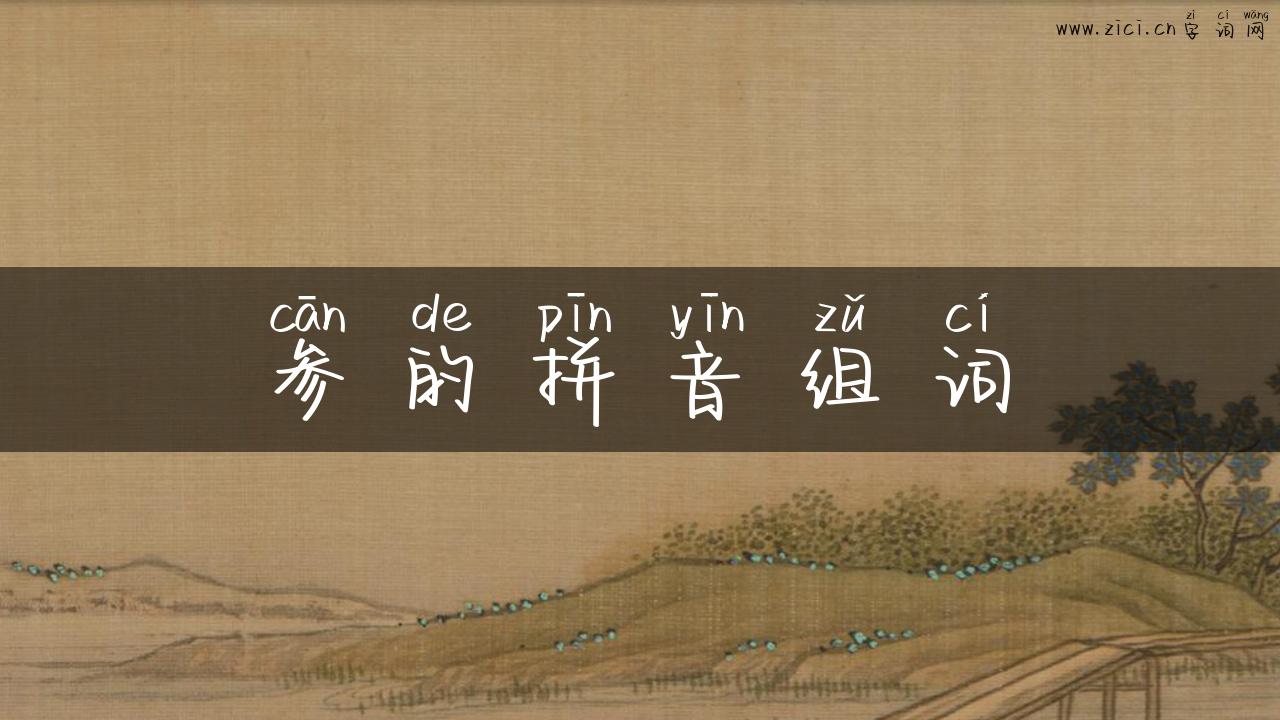 zì cí wǎng
www.zici.cn字词网
cān de pīn yīn zǔ cí
参的拼音组词